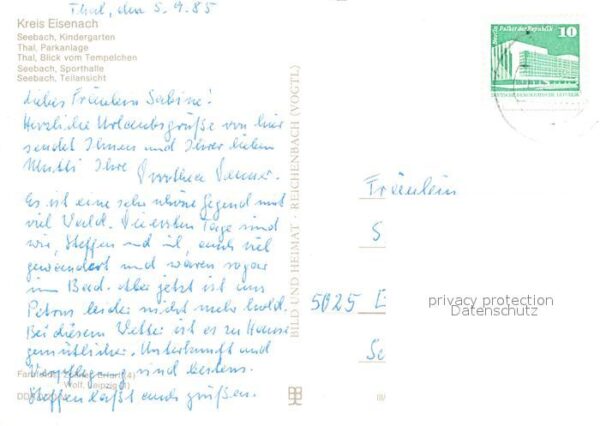 Thal, den 5.9.85
Kreis Eisenach
Seebach, Kindergarten
Thal, Parkanlage
Thal, Blick vom Tempelchen
Seebach, Sporthalle
Seebach, Teilansicht
Liebes Fräulein Sabine!
Herzliche Urlaubsgrüße von hier
sendet Ihnen und Ihrer lieben
Mutti Ihre Dorothea
Es ist eine sehr schöne Gegend mit
viel Wald. Die ersten Tage sind
wir, Steffen und ich, auch viel
gewandert und waren sogar
im Bad. Aber jetzt ist uns
Petrus leider nicht mehr hold.
Bei diesem Wetter ist es zu Hause
gemütlicher. Unterkunft und
Verpflegung sind bestens.
Steffen läßt auch grüßen.
Erfurt (4)
Wolf, Leipzig (1)
DDR
BILD UND HEIMAT · REICHENBACH (VOGTL)
Berlin Palast der Republik
10
DEUTSCHE DEMOKRATISCHE REPUBLIK
Fräulein
S
5025 E
Se
privacy protection
Datenschutz